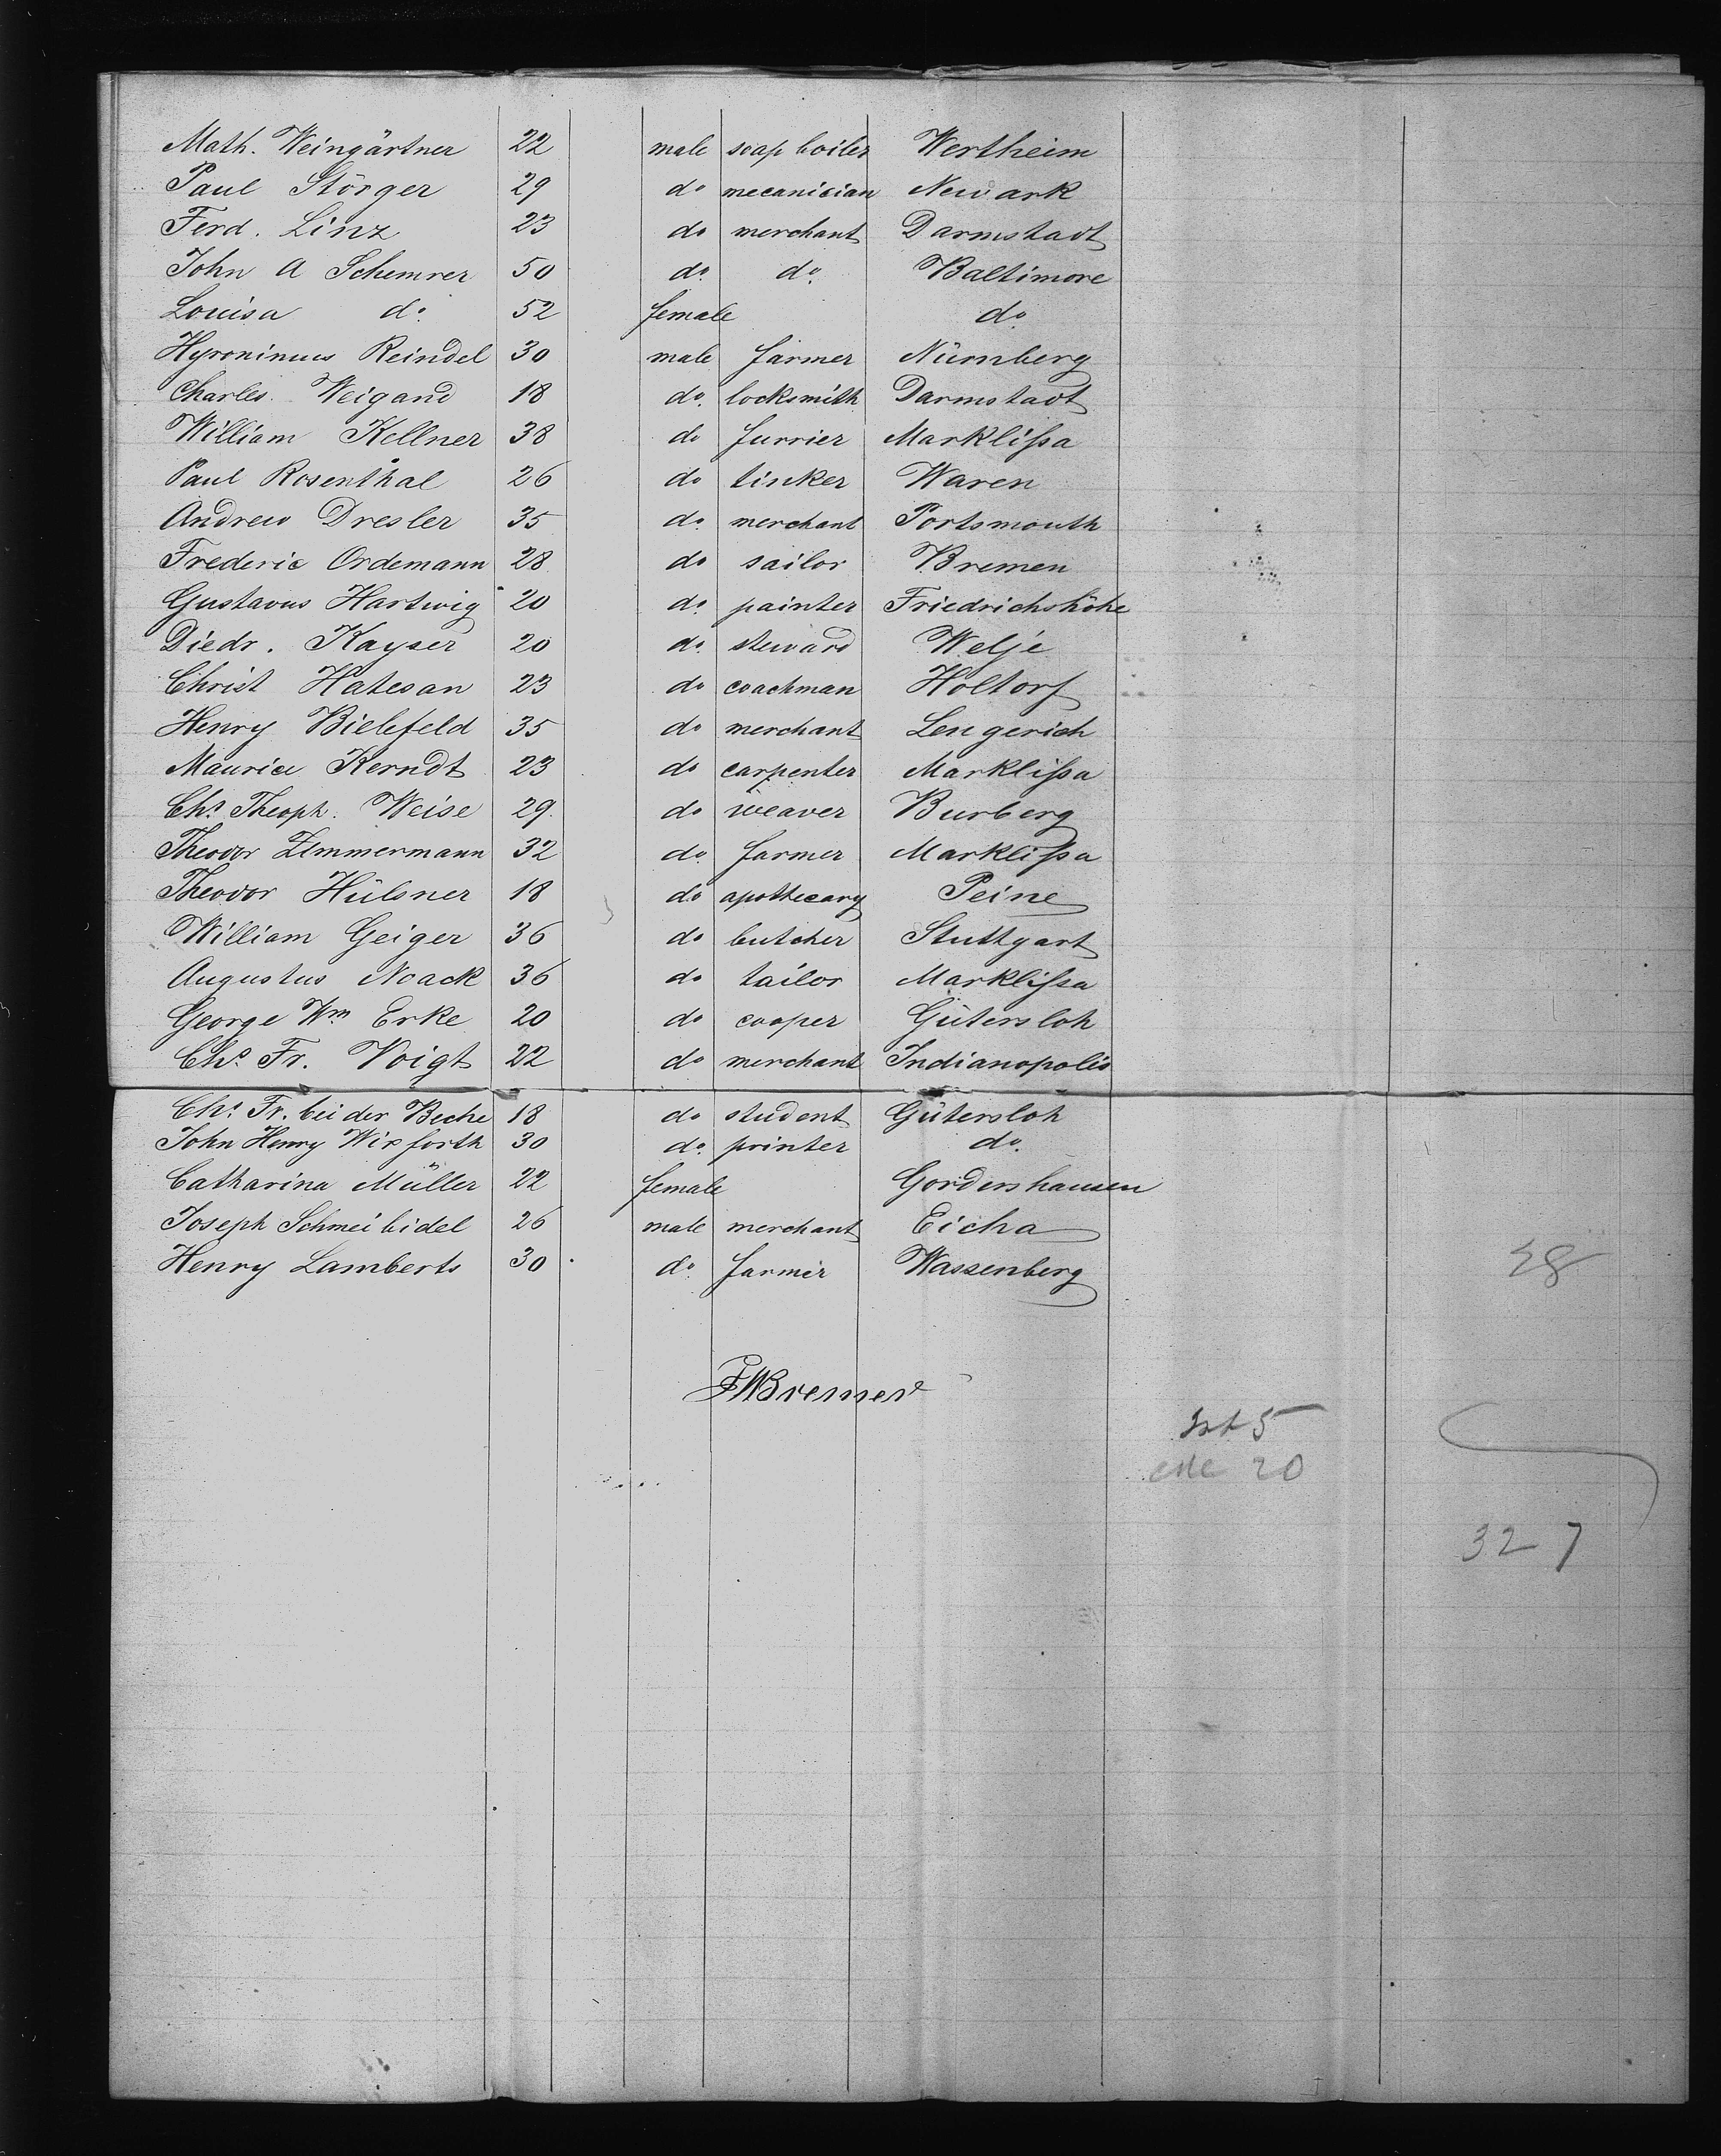 Math. Weingärtner 22 male soap boiler Wertheim
Paul Störger 29 do mecanician Newark
Ferd. Linz 23 do merchant Darmstadt
John A Schemrer 50 do. do. Baltimore
Louisa do. 52 female do.
Hyronimus Reindel 30 male farmer Nürnberg
Charles Weigand 18 do. locksmith Darmstadt
William Kellner 38 do furrier Marklissa
Paul Rosenthal 26 do tinker Waren
Andrew Dresler 35 do. merchant Portsmouth
Frederic Ordemann 28 do sailor Bremen
Gustavus Hartwig 20 do. painter Friedrichshöhe
Diedr. Kayser 20 do. steward Welje
Christ Hatesan 23 do coachman Holtorf
Henry Bielefeld 35 do merchant Lengerich
Maurice Kerndt 23 do carpenter Marklissa
Chs. Theoph. Weise 29. do weaver Burberg
Theodor Zimmermann 32 do. farmer Marklissa
Theodor Hülsner 18 do apothecary Peine
William Geiger 36 do butcher Stuttgart
Augustus Noack 36 do tailor Marklissa
George Wm. Erke 20 do cooper Gütersloh
Chs. Fr. Voigt 22 do merchant Indianopolis
Chs. Fr. bei der Becke 18 do student Gütersloh
John Henry Wixforth 30 do. printer do.
Catharina Müller 22 female Gordershausen
Joseph Schmeibidel 26 male merchant Eicha
Henry Lamberts 30 do. farmer Wassenberg
28
FWBremer
5
20
327